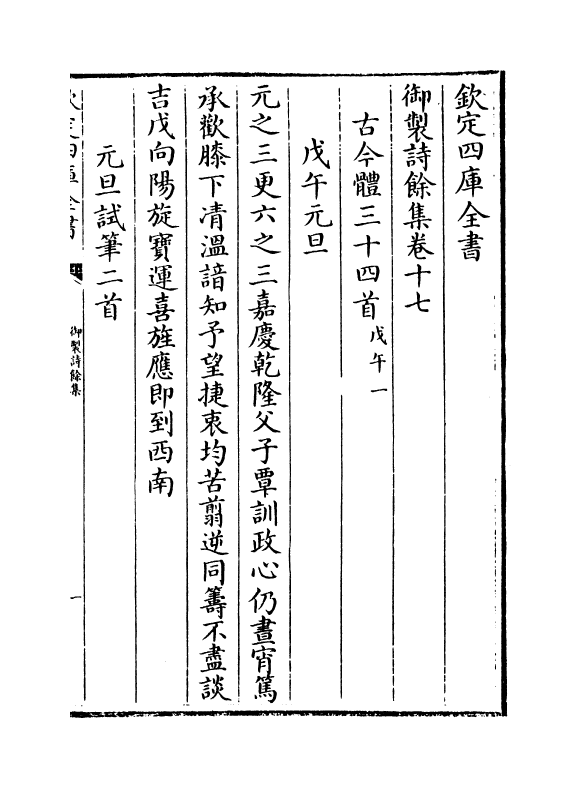 欽定四庫全書
御製詩餘集卷十七
古今體三十四首戊午一
戊午元旦
元之三更六之三嘉慶乾隆父子覃訓政心仍晝宵篤
承歡膝下凊溫諳知予望捷衷均苦翦逆同籌不盡談
吉戊向陽旋寶運喜旌應即到西南
元旦試筆二首
欽定四庫全書
御製詩餘集
一